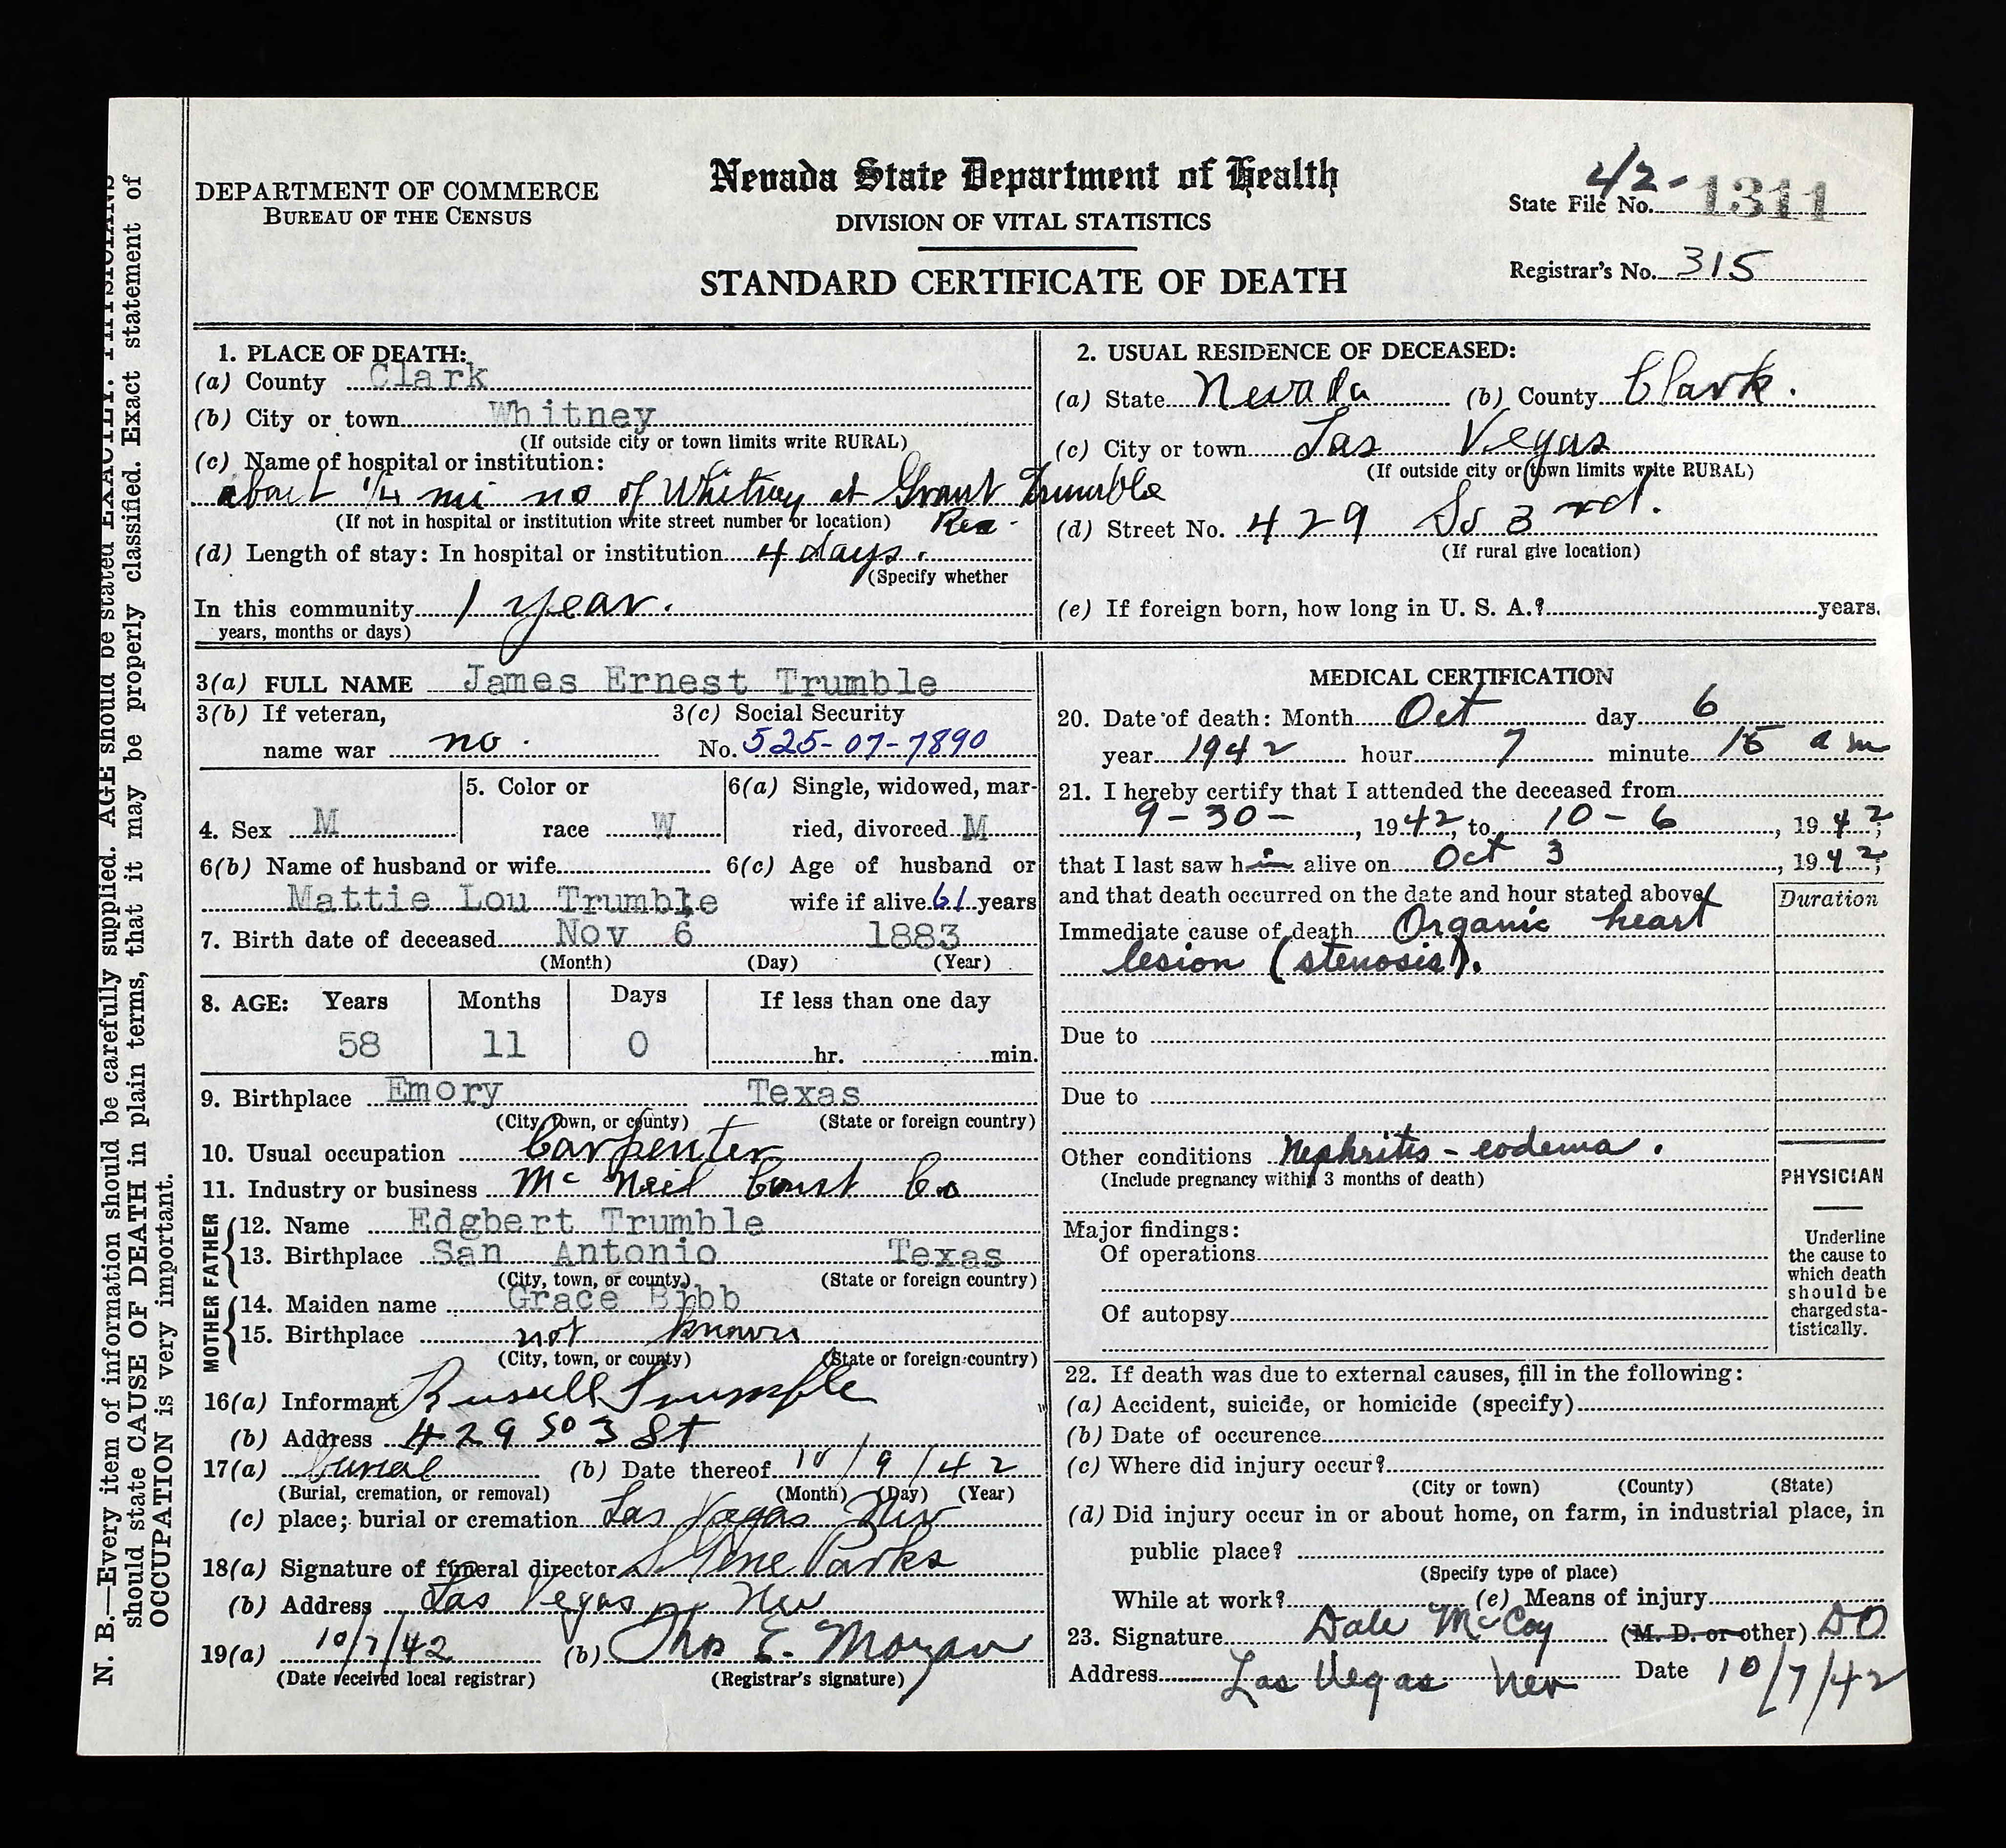 DEPARTMENT OF COMMERCE
BUREAU OF THE CENSUS
Nevada State Department of Health
DIVISION OF VITAL STATISTICS
STANDARD CERTIFICATE OF DEATH
State File No. 42-1311
Registrar's No. 315
1. PLACE OF DEATH:
(a) County Clark
(b) City or town Whitney
(If outside city or town limits write RURAL)
(c) Name of hospital or institution:
about 1/4 mi no of Whitney at Grant Trumble
(If not in hospital or institution write street number or location) Res.
(d) Length of stay: In hospital or institution 4 days.
(Specify whether
In this community 1 year.
years, months or days)
2. USUAL RESIDENCE OF DECEASED:
(a) State Nevada (b) County Clark.
(c) City or town Las Vegas
(If outside city or town limits write RURAL)
(d) Street No. 429 So 3rd.
(If rural give location)
(e) If foreign born, how long in U. S. A.? years.
3(a) FULL NAME James Ernest Trumble
3(b) If veteran,
name war no.
3(c) Social Security
No. 525-07-7890
4. Sex M
5. Color or
race W
6(a) Single, widowed, mar-
ried, divorced M
6(b) Name of husband or wife
Mattie Lou Trumble
6(c) Age of husband or
wife if alive 61 years
7. Birth date of deceased Nov 6 1883
(Month) (Day) (Year)
8. AGE: Years Months Days If less than one day
58 11 0 hr. min.
9. Birthplace Emory Texas
(City, Town, or county) (State or foreign country)
10. Usual occupation Carpenter
11. Industry or business Mc Neil Const Co
FATHER
12. Name Edgbert Trumble
13. Birthplace San Antonio Texas
(City, town, or county) (State or foreign country)
MOTHER
14. Maiden name Grace Bibb
15. Birthplace not known
(City, town, or county) (State or foreign country)
16(a) Informant Russell Trumble
(b) Address 429 So 3 St
17(a) burial (b) Date thereof 10/9/42
(Burial, cremation, or removal) (Month) (Day) (Year)
(c) place; burial or cremation Las Vegas Nev
18(a) Signature of funeral director Gene Parks
(b) Address Las Vegas, Nev
19(a) 10/7/42 (b) Thos E. Mozan
(Date received local registrar) (Registrar's signature)
MEDICAL CERTIFICATION
20. Date of death: Month Oct day 6
year 1942 hour 7 minute 15 am
21. I hereby certify that I attended the deceased from
9-30-, 1942, to 10-6, 1942;
that I last saw him alive on Oct 3, 1942;
and that death occurred on the date and hour stated above.
Duration
Immediate cause of death Organic heart
lesion (stenosis).
Due to
Due to
Other conditions Nephritis - eodema.
(Include pregnancy within 3 months of death)
Major findings:
Of operations
Of autopsy
PHYSICIAN
Underline
the cause to
which death
should be
charged sta-
tistically.
22. If death was due to external causes, fill in the following:
(a) Accident, suicide, or homicide (specify)
(b) Date of occurence
(c) Where did injury occur?
(City or town) (County) (State)
(d) Did injury occur in or about home, on farm, in industrial place, in
public place?
(Specify type of place)
While at work? (e) Means of injury
23. Signature Dale McCoy (M. D. or other) DO
Address Las Vegas Nev Date 10/7/42
N. B.—Every item of information should be carefully supplied. AGE should be stated EXACTLY. PHYSICIANS
should state CAUSE OF DEATH in plain terms, that it may be properly classified. Exact statement of
OCCUPATION is very important.